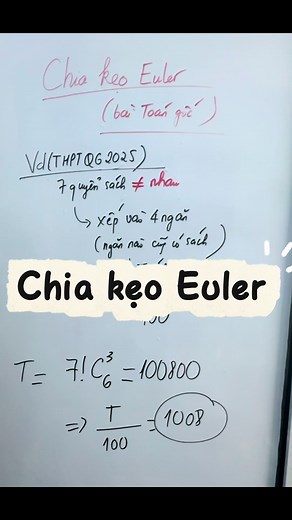 Chia kẹo Euler
(bài Toán gốc)
Vd(THPTQG2025)
7 quyển sách ≠ nhau
↳ xếp vào 4 ngăn
(ngăn nào cũng có sách)
Chia kẹo Euler
T = 7! C₆³ = 100800
⇒ T/100 = 1008